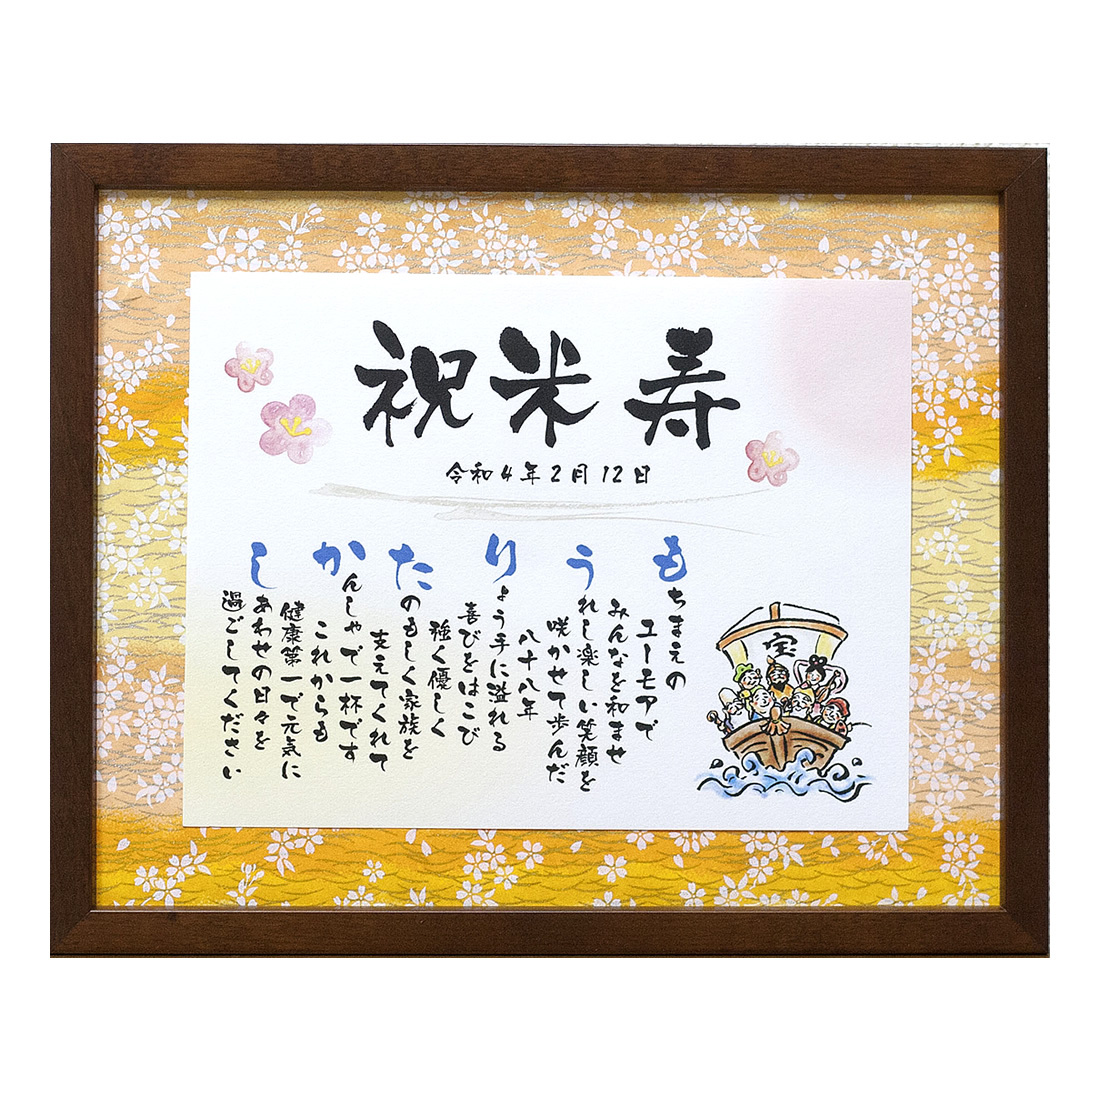 祝米寿
令和4年2月12日
もちまえの
ユーモアで
みんなを和ませ
うれし楽しい笑顔を
咲かせて歩んだ
八十八年
りょう手に溢れる
喜びをはこび
強く優しく
たのもしく家族を
支えてくれて
かんしゃで一杯です
これからも
健康第一で元気に
しあわせの日々を
過ごしてください
宝